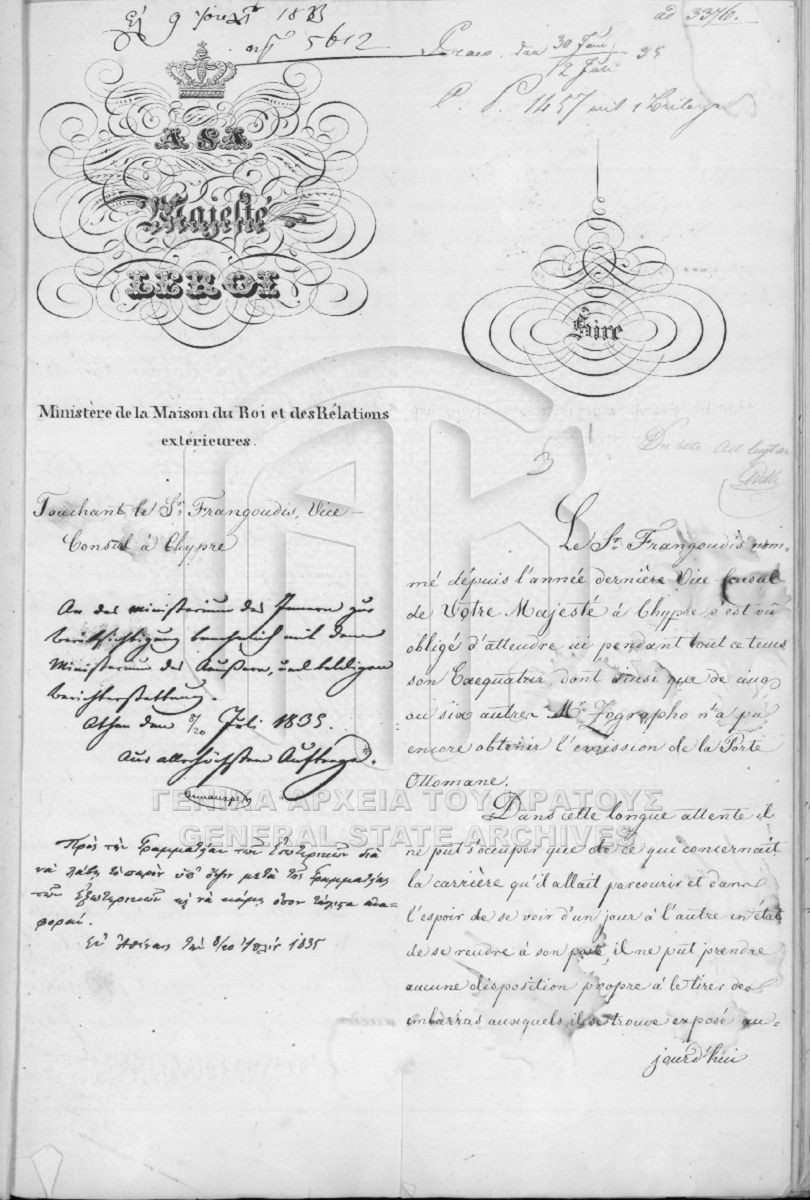 9 1835
5612
ad 3376.
30 Juni 35
12 Juli
1457 mit 1 Beilage
A SA
Majesté
LE ROI
Sire
Ministère de la Maison du Roi et des Rélations
extérieures.
Touchant le Sr. Frangoudis, Vice-
Consul à Chypre
An das Ministerium des Innern zur
Berücksichtigung benehmlich mit dem
Ministerium des Äußern, und baldigen
Berichterstattung.
Athen den 8/20 Juli 1835.
Aus allerhöchstem Auftrage.
Πρὸς τὴν Γραμματείαν τῶν Ἐσωτερικῶν διὰ
νὰ λάβῃ τὸ παρὸν ὑπ' ὄψιν μετὰ τῆς Γραμματείας
τῶν Ἐξωτερικῶν καὶ νὰ κάμῃ ὅσον τάχιστα ἀνα-
φοράν.
Ἐν Ἀθήναις τὴν 8/20 Ἰουλίου 1835
Le Sr. Frangoudis nom-
mé dépuis l'année dernière Vice Consul
de Votre Majesté à Chypre s'est vû
obligé d'attendre ici pendant tout ce tems
son Exequatur, dont ainsi que de cinq
ou six autres Mr. Zographo n'a pu
encore obtenir l'emission de la Porte
Ottomane.
Dans cette longue attente il
ne put s'occuper que de ce qui concernait
la carrière qu'il allait parcourir et dans
l'espoir de se voir d'un jour à l'autre en état
de se rendre à son poste, il ne put prendre
aucune disposition propre à le tirer des
embarras auxquels il se trouve exposé au-
jourd'hui
ΓΕΝΙΚΑ ΑΡΧΕΙΑ ΤΟΥ ΚΡΑΤΟΥΣ
GENERAL STATE ARCHIVES